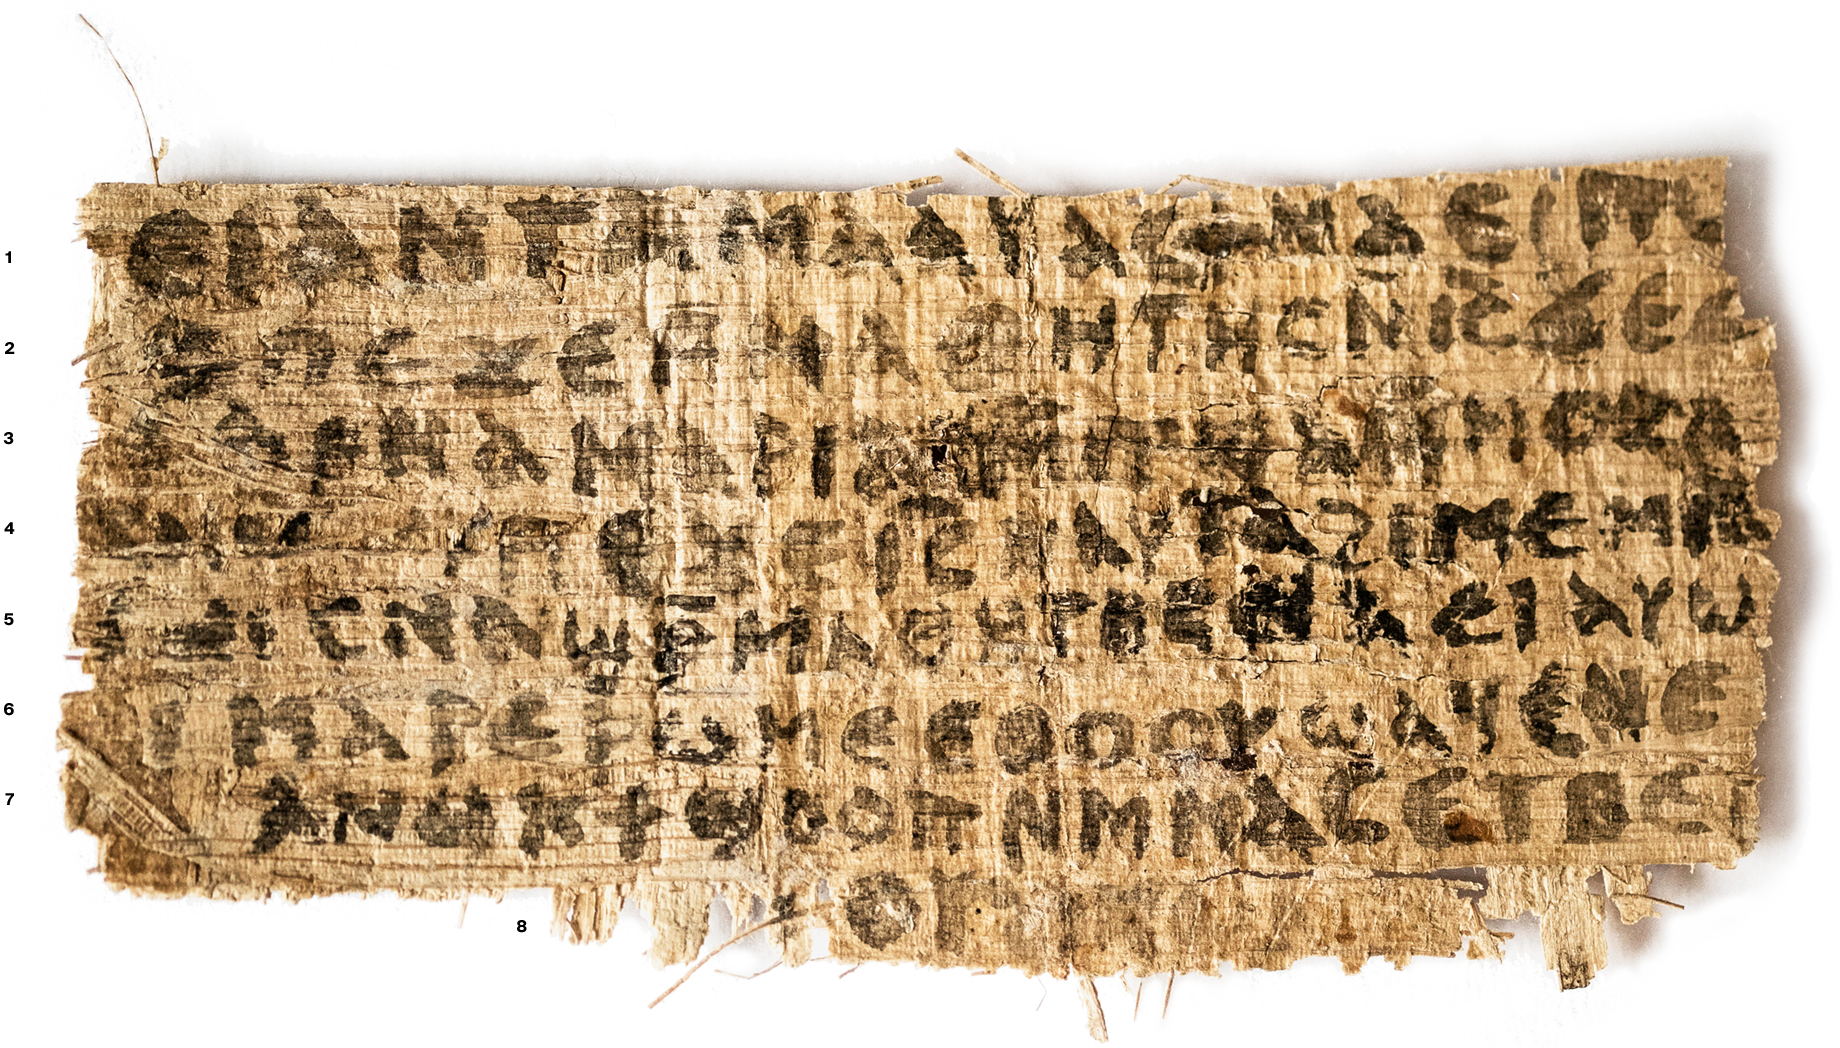 1 ⲉⲓ ⲁⲛ ⲧⲁⲙⲁⲁⲩ ⲁⲥϯ ⲛⲁⲉⲓ ⲡ
2 ⲥ ⲡⲉϫⲉ ⲙ̄ⲙⲁⲑⲏⲧⲏⲥ ⲛ̄ⲓ̅ⲥ̅ ϫⲉ ⲥ
3 ⲁⲣⲛⲁ ⲙⲁⲣⲓⲁⲙ ⲙ̄ⲡϣⲁ ⲙ̄ⲙⲟⲥ ⲁ
4 ⲡⲉϫⲉ ⲓ̅ⲥ̅ ⲛⲁⲩ ⲧⲁϩⲓⲙⲉ ⲙⲛ̄
5 ⲥⲛⲁϣⲣ̄ⲙⲁⲑⲏⲧⲏⲥ ⲛⲁⲉⲓ ⲁⲩⲱ
6 ⲓ ⲙⲁⲣⲉⲣⲱⲙⲉ ⲉⲑⲟⲟⲩ ϣⲁϥⲉ ⲛⲉ
7 ⲁⲛⲟⲕ ϯϣⲟⲟⲡ ⲛⲙ̄ⲙⲁⲥ ⲉⲧⲃⲉ ⲡ
8